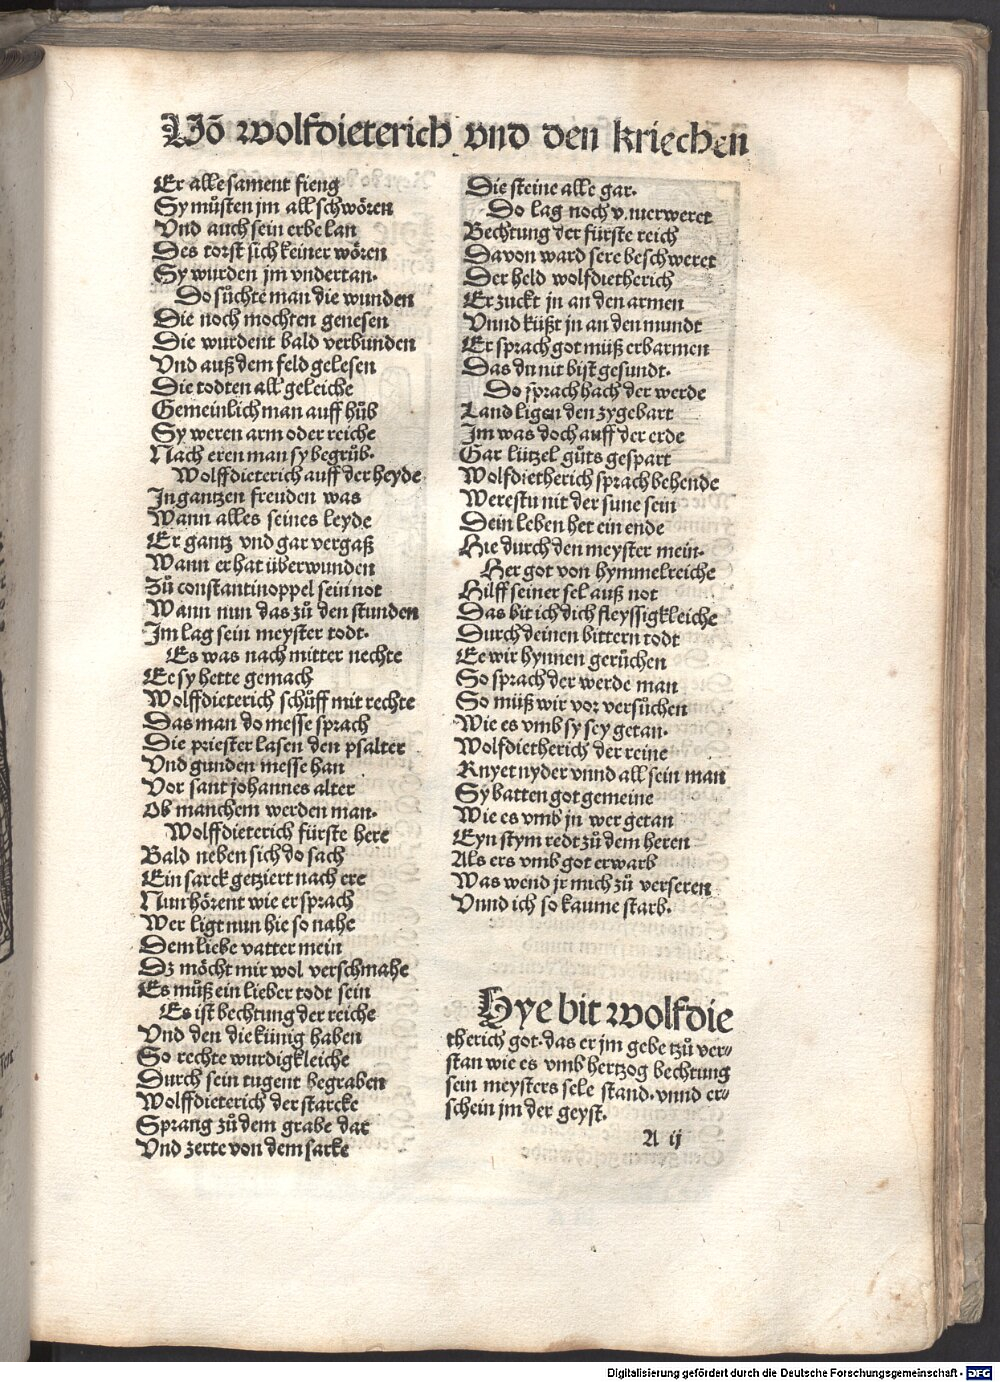 Võ wolfdieterich vnd den kriechen
Er alle sament fieng
Sy můsten jm all schwören
Vnd auch sein erbe lan
Des torst sich keiner wören
Sy wurden jm vndertan.
Do sůchte man die wunden
Die noch mochten genesen
Die wurdent bald verbunden
Vnd auß dem feld gelesen
Die todten all geleiche
Gemeinlich man auff hůb
Sy weren arm oder reiche
Nach eren man sy begrůb.
Wolffdieterich auff der heyde
In gantzen freuden was
Wann alles seines leyde
Er gantz vnd gar vergaß
Wann er hat überwunden
Zů constantinoppel sein not
Wann nun das zů den stunden
Im lag sein meyster todt.
Es was nach mitter nechte
Ee sy hette gemach
Wolffdieterich schůff mit rechte
Das man do messe sprach
Die priester lasen den psalter
Vnd gunden messe han
Vor sant johannes alter
Ob manchem werden man.
Wolffdieterich fürste here
Bald neben sich do sach
Ein sarck getziert nach ere
Nun hörent wie er sprach
Wer ligt nun hie so nahe
Dem liebe vatter mein
Dz möcht mir wol verschmahe
Es můß ein lieber todt sein
Es ist bechtung der reiche
Vnd den die künig haben
So rechte wurdigkleiche
Durch sein tugent begraben
Wolffdieterich der starcke
Sprang zů dem grabe dar
Vnd zerte von dem sarke
Die steine alle gar.
Do lag noch vnuerweret
Bechtung der fürste reich
Davon ward sere beschweret
Der held wolfdietherich
Er zuckt jn an den armen
Vnnd küßt jn an den mundt
Er sprach got müß erbarmen
Das du nit bist gesundt.
Do sprach hach der werde
Land ligen den zygebart
Im was doch auff der erde
Gar lützel gůts gespart
Wolfdietherich sprach behende
Werestu nit der sune sein
Dein leben het ein ende
Hie durch den meyster mein.
Her got von hymmelreiche
Hilff seiner sel auß not
Das bit ich dich fleyssigkleiche
Durch deinen bittern todt
Ee wir hynnen gerůchen
So sprach der werde man
So můß wir vor versůchen
Wie es vmb sy sey getan.
Wolfdietherich der reine
Knyet nyder vnnd all sein man
Sy batten got gemeine
Wie es vmb jn wer getan
Eyn stym redt zů dem heren
Als ers vmb got erwarb
Was wend jr mich zů verseren
Vnnd ich so kaume starb.
Hye bit wolfdie
therich got. das er jm gebe tzů ver=
stan wie es vmb hertzog bechtung
sein meysters sele stand. vnnd er=
schein jm der geyst.
A ij
Digitalisierung gefördert durch die Deutsche Forschungsgemeinschaft - DFG